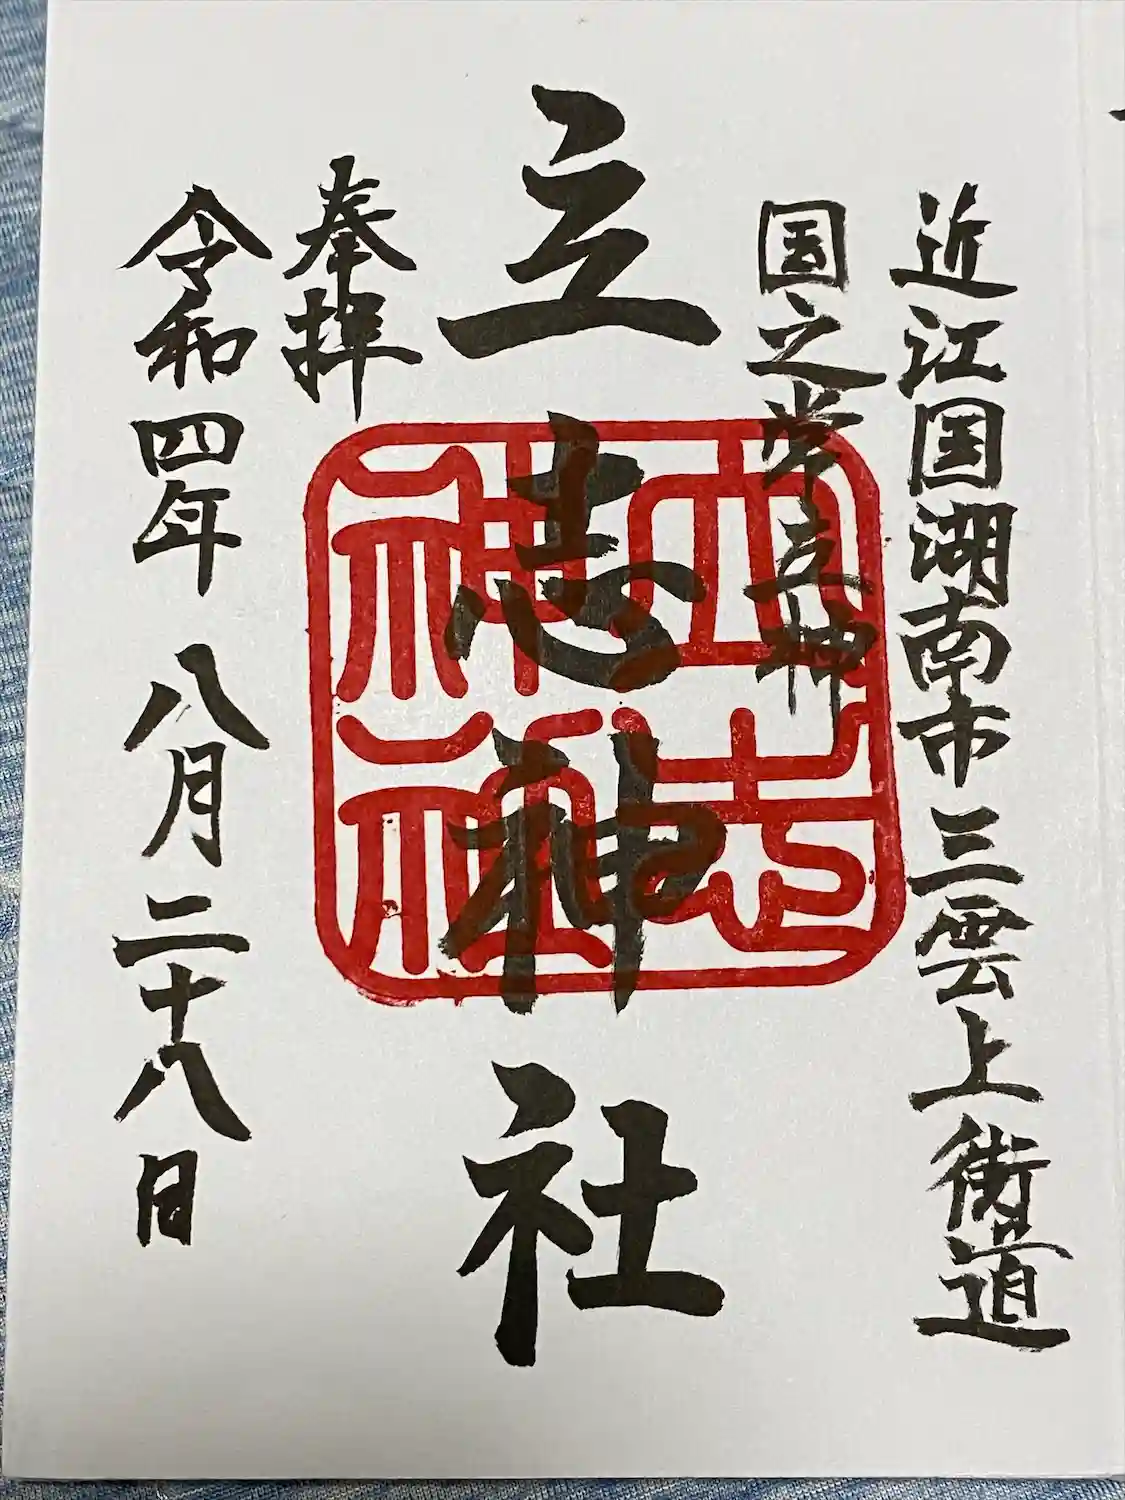 近江国湖南市三雲上街道
国之常立神
立志神社
奉拝
令和四年 八月二十八日
立志
神社